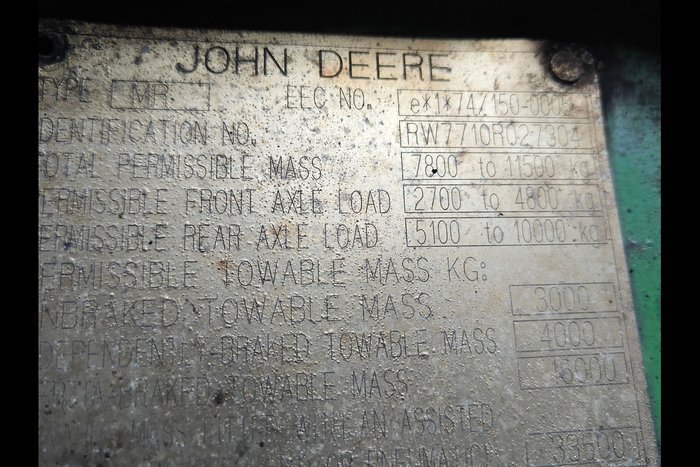 JOHN DEERE
TYPE MR EEC NO. e*1*74/150-0005
DENTIFICATION NO. RW7710R027304
OTAL PERMISSIBLE MASS 7800 to 11500 kg
ERMISSIBLE FRONT AXLE LOAD 2700 to 4800 kg
ERMISSIBLE REAR AXLE LOAD 5100 to 10000 kg
ERMISSIBLE TOWABLE MASS KG:
NBRAKED TOWABLE MASS 3000
DEPENDENTLY-BRAKED TOWABLE MASS 4000
BRAKED TOWABLE MASS 16000
MASS FITTED WITH AN ASSISTED
33500